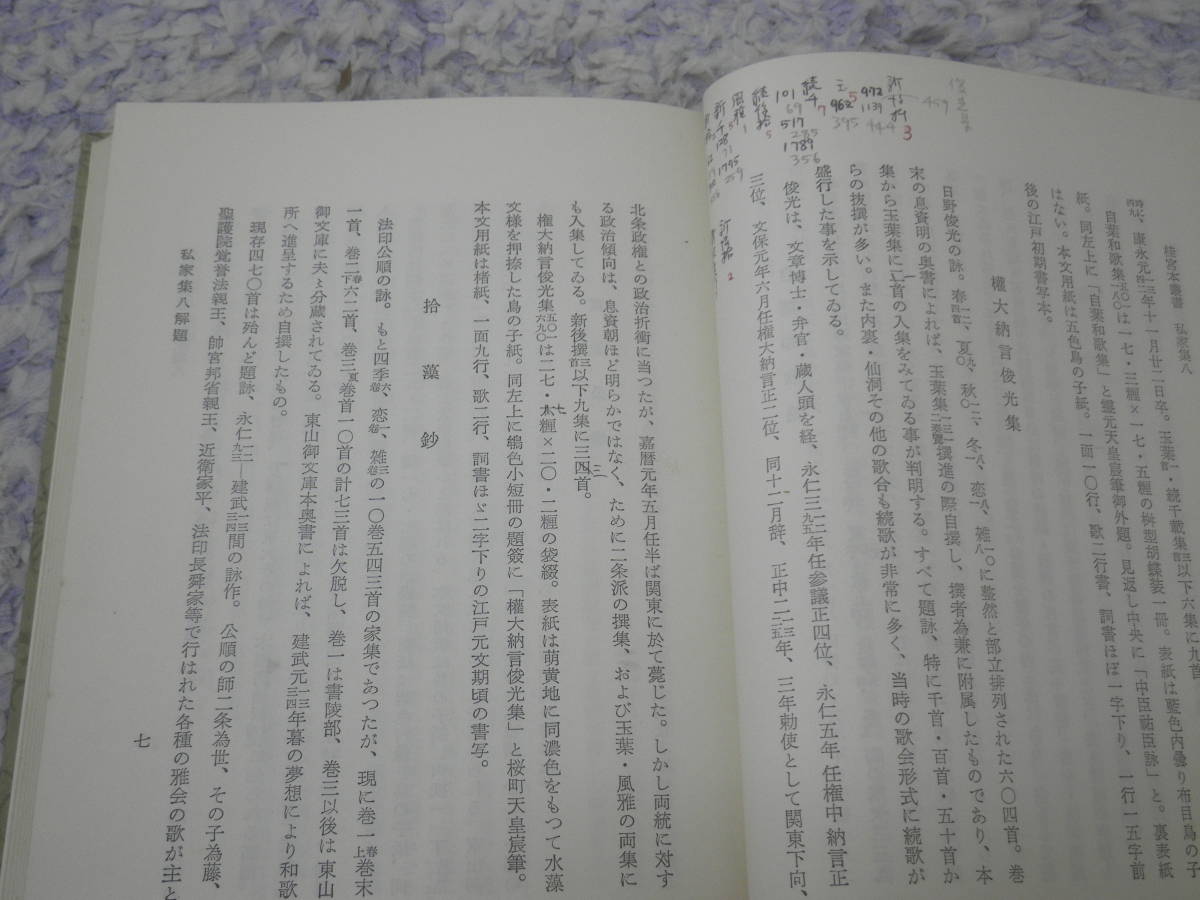 桂宮本叢書 私家集八
時に、康永元年十一月廿二日卒。玉葉・続千載集以下六集に九首
自葉和歌集は一七・三糎×一七・五糎の桝型胡蝶装一冊。表紙は藍色内曇り布目鳥の子
紙。同左上に「自葉和歌集」と霊元天皇宸筆御外題。見返し中央に「中臣祐臣詠」と。裏表紙
はない。本文用紙は五色鳥の子紙。一面一〇行、歌二行書、詞書ほぼ一字下り、一行一五字前
後の江戸初期書写本。
權大納言俊光集
日野俊光の詠。春、夏、秋、冬、恋、雑に整然と部立排列された六〇四首。巻
末の息資明の奥書によれば、玉葉集撰進の際自撰し、撰者為兼に附属したものであり、本
集から玉葉集に二首の入集をみてゐる事が判明する。すべて題詠、特に千首・百首・五十首か
らの抜撰が多い。また内裏・仙洞その他の歌合も続歌が非常に多く、当時の歌会形式に続歌が
盛行した事を示してゐる。
俊光は、文章博士・弁官・蔵人頭を経、永仁三年任参議正四位、永仁五年任権中納言正
三位、文保元年六月任権大納言正二位、同十一月辞、正中二年、三年勅使として関東下向、
俊光集
459
新拾
972
1139
444
3
玉
5
962
395
続千
7
101
69
517
285
1789
356
続後拾
5
風雅
1
新千
5
128
71
1795
259
新後拾
2
北条政権との政治折衝に当つたが、嘉暦元年五月任半ば関東に於て薨じた。しかし両統に対す
る政治傾向は、息資朝ほど明らかではなく、ために二条派の撰集、および玉葉・風雅の両集に
も入集してゐる。新後撰以下九集に三四首。
三
權大納言俊光集は二七・六糎×二〇・二糎の袋綴。表紙は萌黄地に同濃色をもつて水藻
七
文様を押捺した鳥の子紙。同左上に鴇色小短冊の題簽に「權大納言俊光集」と桜町天皇宸筆。
本文用紙は楮紙、一面九行、歌二行、詞書ほゞ二字下りの江戸元文期頃の書写。
拾藻鈔
法印公順の詠。もと四季六巻、恋一巻、雑三巻の一〇巻五四三首の家集であつたが、現に巻一春上巻末
一首、巻二春下六二首、巻三夏巻首一〇首の計七三首は欠脱し、巻一は書陵部、巻三以後は東山
御文庫に夫々分蔵されてゐる。東山御文庫本奥書によれば、建武元一三三四年暮の夢想により和歌
所へ進呈するため自撰したもの。
現存四七〇首は殆んど題詠、永仁一二九三―建武一三三四間の詠作。公順の師二条為世、その子為藤、
聖護院覚誉法親王、帥宮邦省親王、近衛家平、法印長舜家等で行はれた各種の雅会の歌が主と
私家集八解題
七